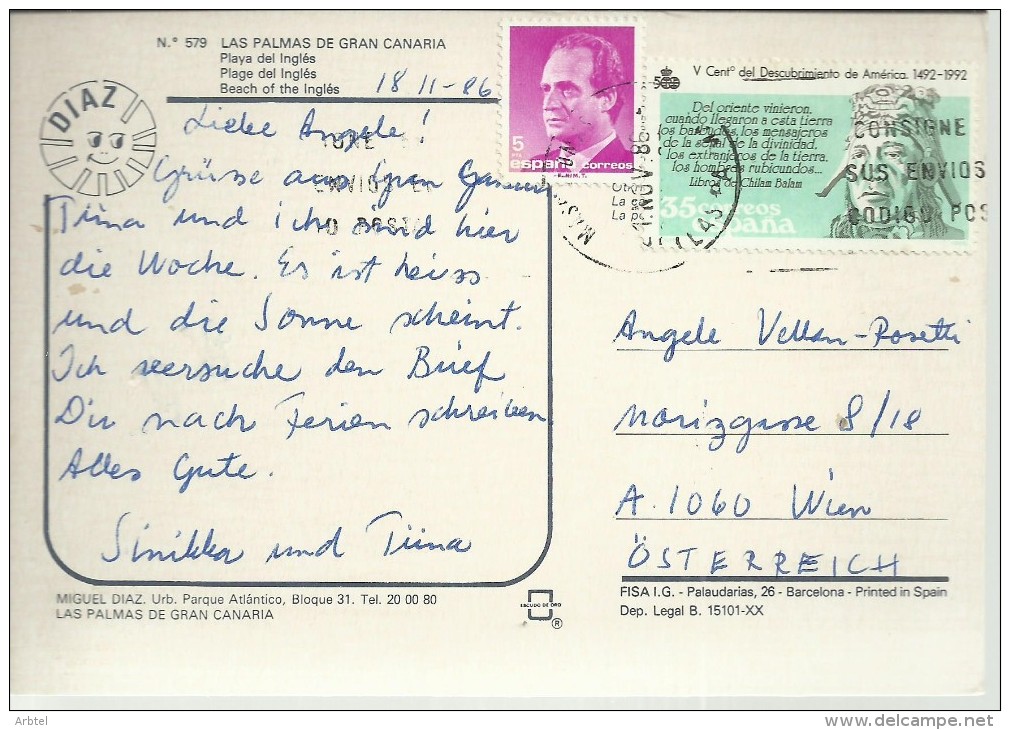 N.º 579 LAS PALMAS DE GRAN CANARIA
Playa del Inglés
Plage del Inglés
Beach of the Inglés
18 11-86
DIAZ
Liebe Angele!
Grüsse aus Gran Canaria
Tiina und ich sind hier
die Woche. Es ist heiss
und die Sonne scheint.
Ich versuche den Brief
Dir nach Ferien schreiben.
Alles Gute.
Sinikka und Tiina
MIGUEL DIAZ. Urb. Parque Atlántico, Bloque 31. Tel. 20 00 80
LAS PALMAS DE GRAN CANARIA
ESCUDO DE ORO
®
5
PTA
españa correos
F.N.M.T.
V Centº del Descubrimiento de América. 1492-1992
Del oriente vinieron,
cuando llegaron a esta tierra
los barbudos, los mensajeros
de la señal de la divinidad,
los extranjeros de la tierra,
los hombres rubicundos...
Libros de Chilam Balam
35 correos
españa
CONSIGNE
SUS ENVIOS
CODIGO POS
NOV 86
Angele Vellan-Rosetti
Morizgasse 8/18
A. 1060 Wien
ÖSTERREICH
FISA I.G. - Palaudarias, 26 - Barcelona - Printed in Spain
Dep. Legal B. 15101-XX
Arbtel
delcampe.net